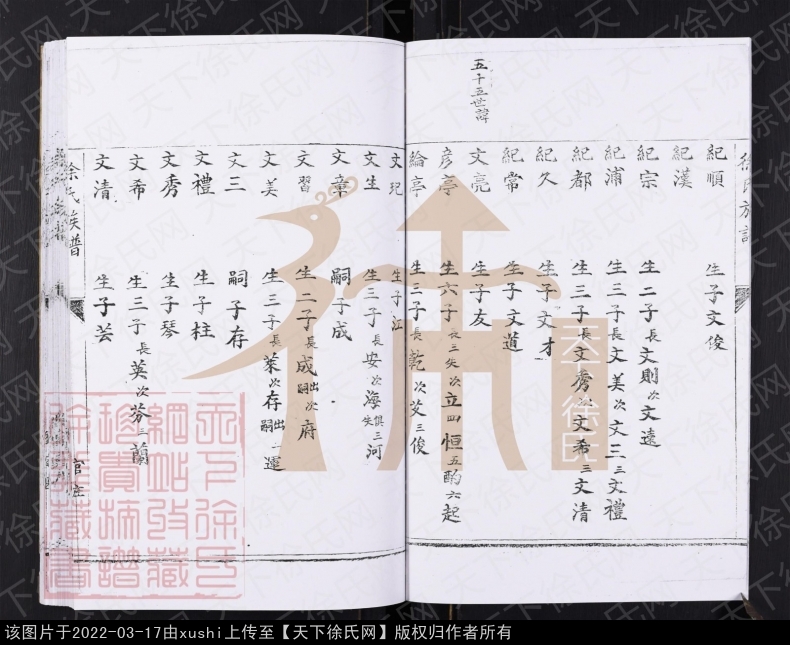 徐氏族譜
紀順 生子文俊
紀漢
紀宗 生二子長文則次文遠
紀浦 生三子長文美次文三三文禮
紀都 生三子長文秀次文希三文清
紀久 生子文才
紀常 生子文道
五十五世諱
文亮 生子友
彦亭 生六子長三失次立四恒五酌六起
綸亭 生三子長乾次艾三俊
文玘 生子江
文生 生三子長安次海俱失三河
文章 嗣子成
文習 生二子長成出嗣次府
文美 生三子長萊次存出嗣一運
文三 嗣子存
文禮 生子柱
文秀 生子琴
文希 生三子長英次芬三蘭
文清 生子芸
徐氏族普
官庄
天下徐氏
天下徐氏网
该图片于2022-03-17由xushi上传至【天下徐氏网】版权归作者所有